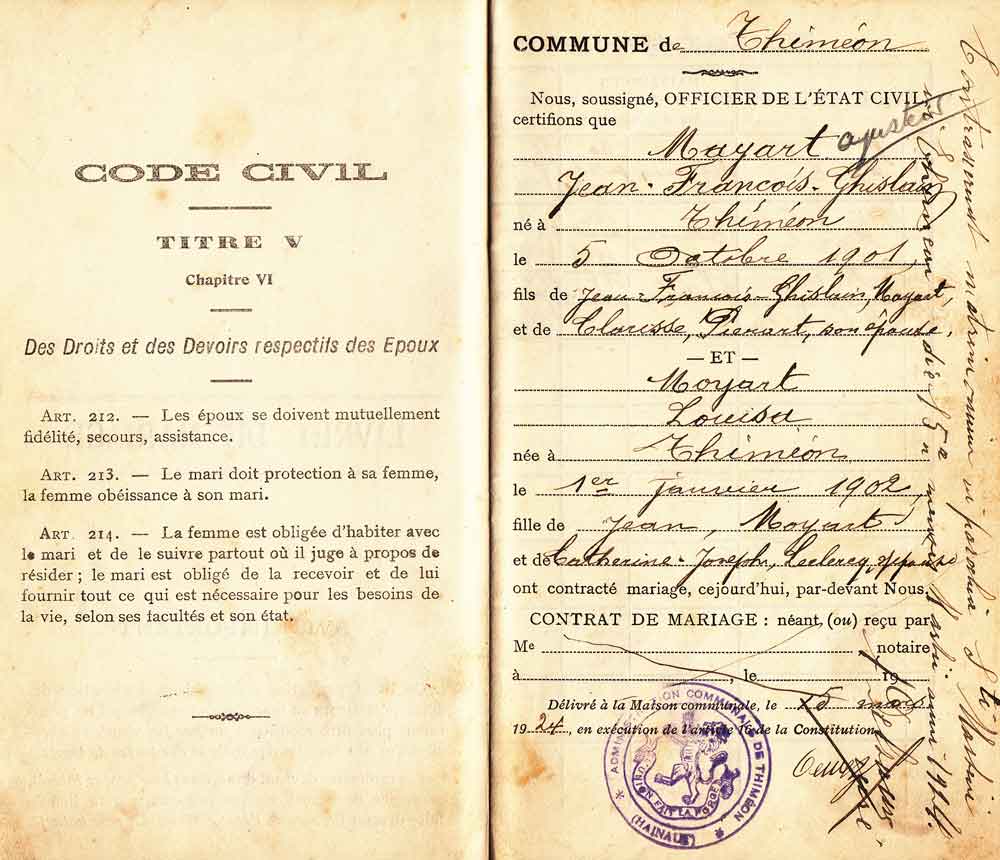 CODE CIVIL
TITRE V
Chapitre VI
Des Droits et des Devoirs respectifs des Epoux
ART. 212. — Les époux se doivent mutuellement
fidélité, secours, assistance.
ART. 213. — Le mari doit protection à sa femme,
la femme obéissance à son mari.
ART. 214. — La femme est obligée d'habiter avec
le mari et de le suivre partout où il juge à propos de
résider ; le mari est obligé de la recevoir et de lui
fournir tout ce qui est nécessaire pour les besoins de
la vie, selon ses facultés et son état.
COMMUNE de Thiméon
Nous, soussigné, OFFICIER DE L'ÉTAT CIVIL
certifions que
Mayart ajusteur
Jean-François-Ghislain
né à Thiméon
le 5 Octobre 1901,
fils de Jean-François-Ghislain, Moyart,
et de Clarisse, Pierart, son épouse,
— ET —
Moyart
Louisa
née à Thiméon
le 1er janvier 1902,
fille de Jean, Moyart
et de Catherine-Joseph, Leclercq,
ont contracté mariage, cejourd'hui, par-devant Nous.
CONTRAT DE MARIAGE : néant, (ou) reçu par
Me notaire
à , le 19
Délivré à la Maison communale, le 15 mars
1924, en exécution de l'article 16 de la Constitution
ADMINISTRATION COMMUNALE DE THIMÉON
L'UNION FAIT LA FORCE
(HAINAUT)
Contraxerunt matrimonium in parochia Sti Martini
die 15a mensis Martii anni 1924.